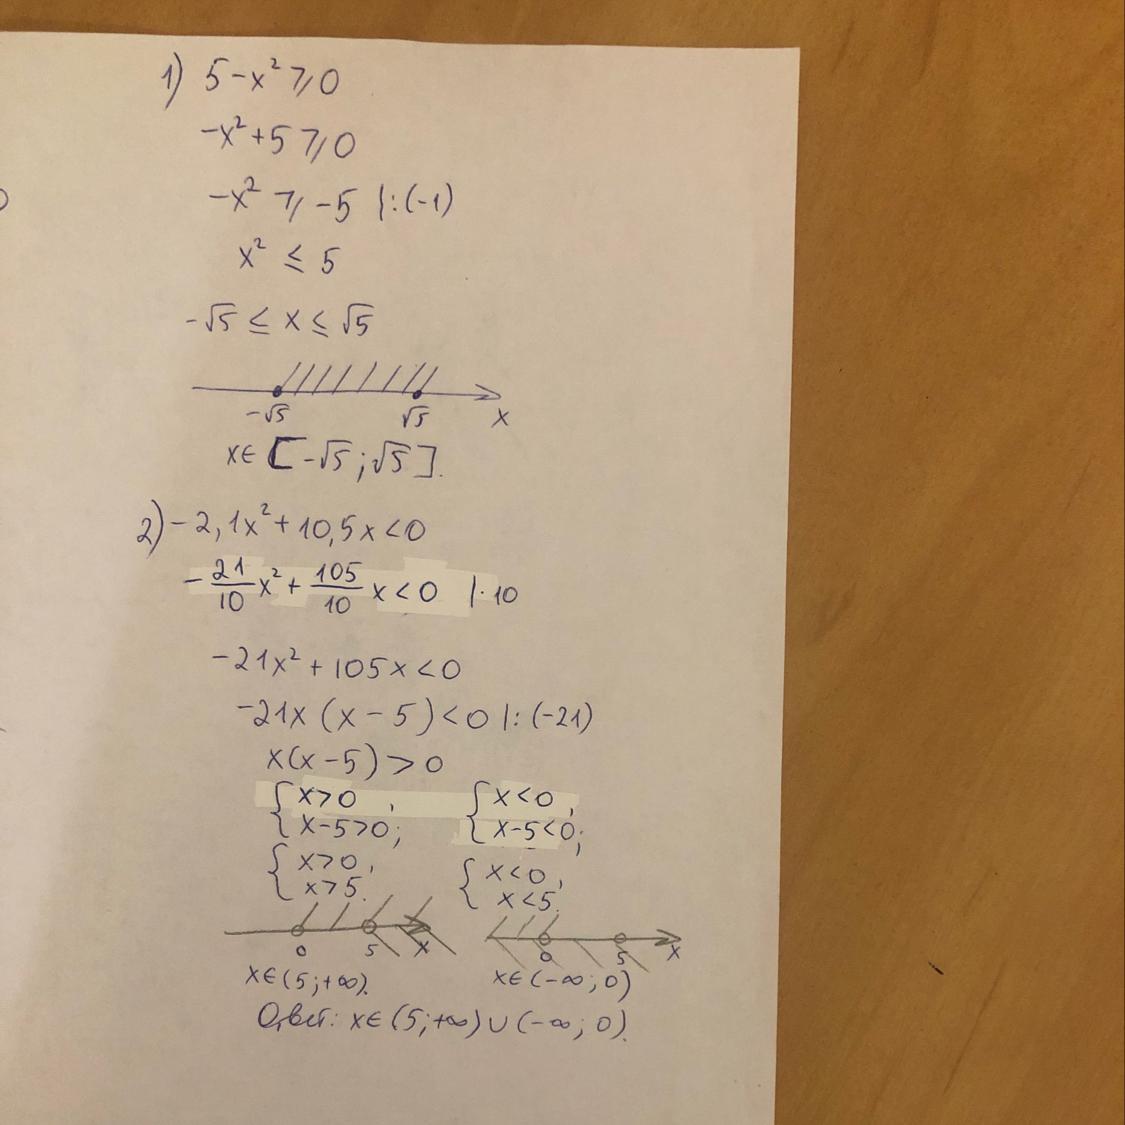 1) 5-x² ≥ 0
-x²+5 ≥ 0
-x² ≥ -5 |:(-1)
x² ≤ 5
-√5 ≤ x ≤ √5
-√5 √5 x
x∈ [-√5;√5].
2) -2,1x²+10,5x<0
-21/10 x²+ 105/10 x<0 |·10
-21x²+105x<0
-21x(x-5)<0 |:(-21)
x(x-5)>0
{x>0, {x<0,
x-5>0; x-5<0;
{x>0, {x<0,
x>5. x<5.
0 5 x 0 5 x
x∈(5;+∞). x∈(-∞;0)
Ответ: x∈(5;+∞)∪(-∞;0).